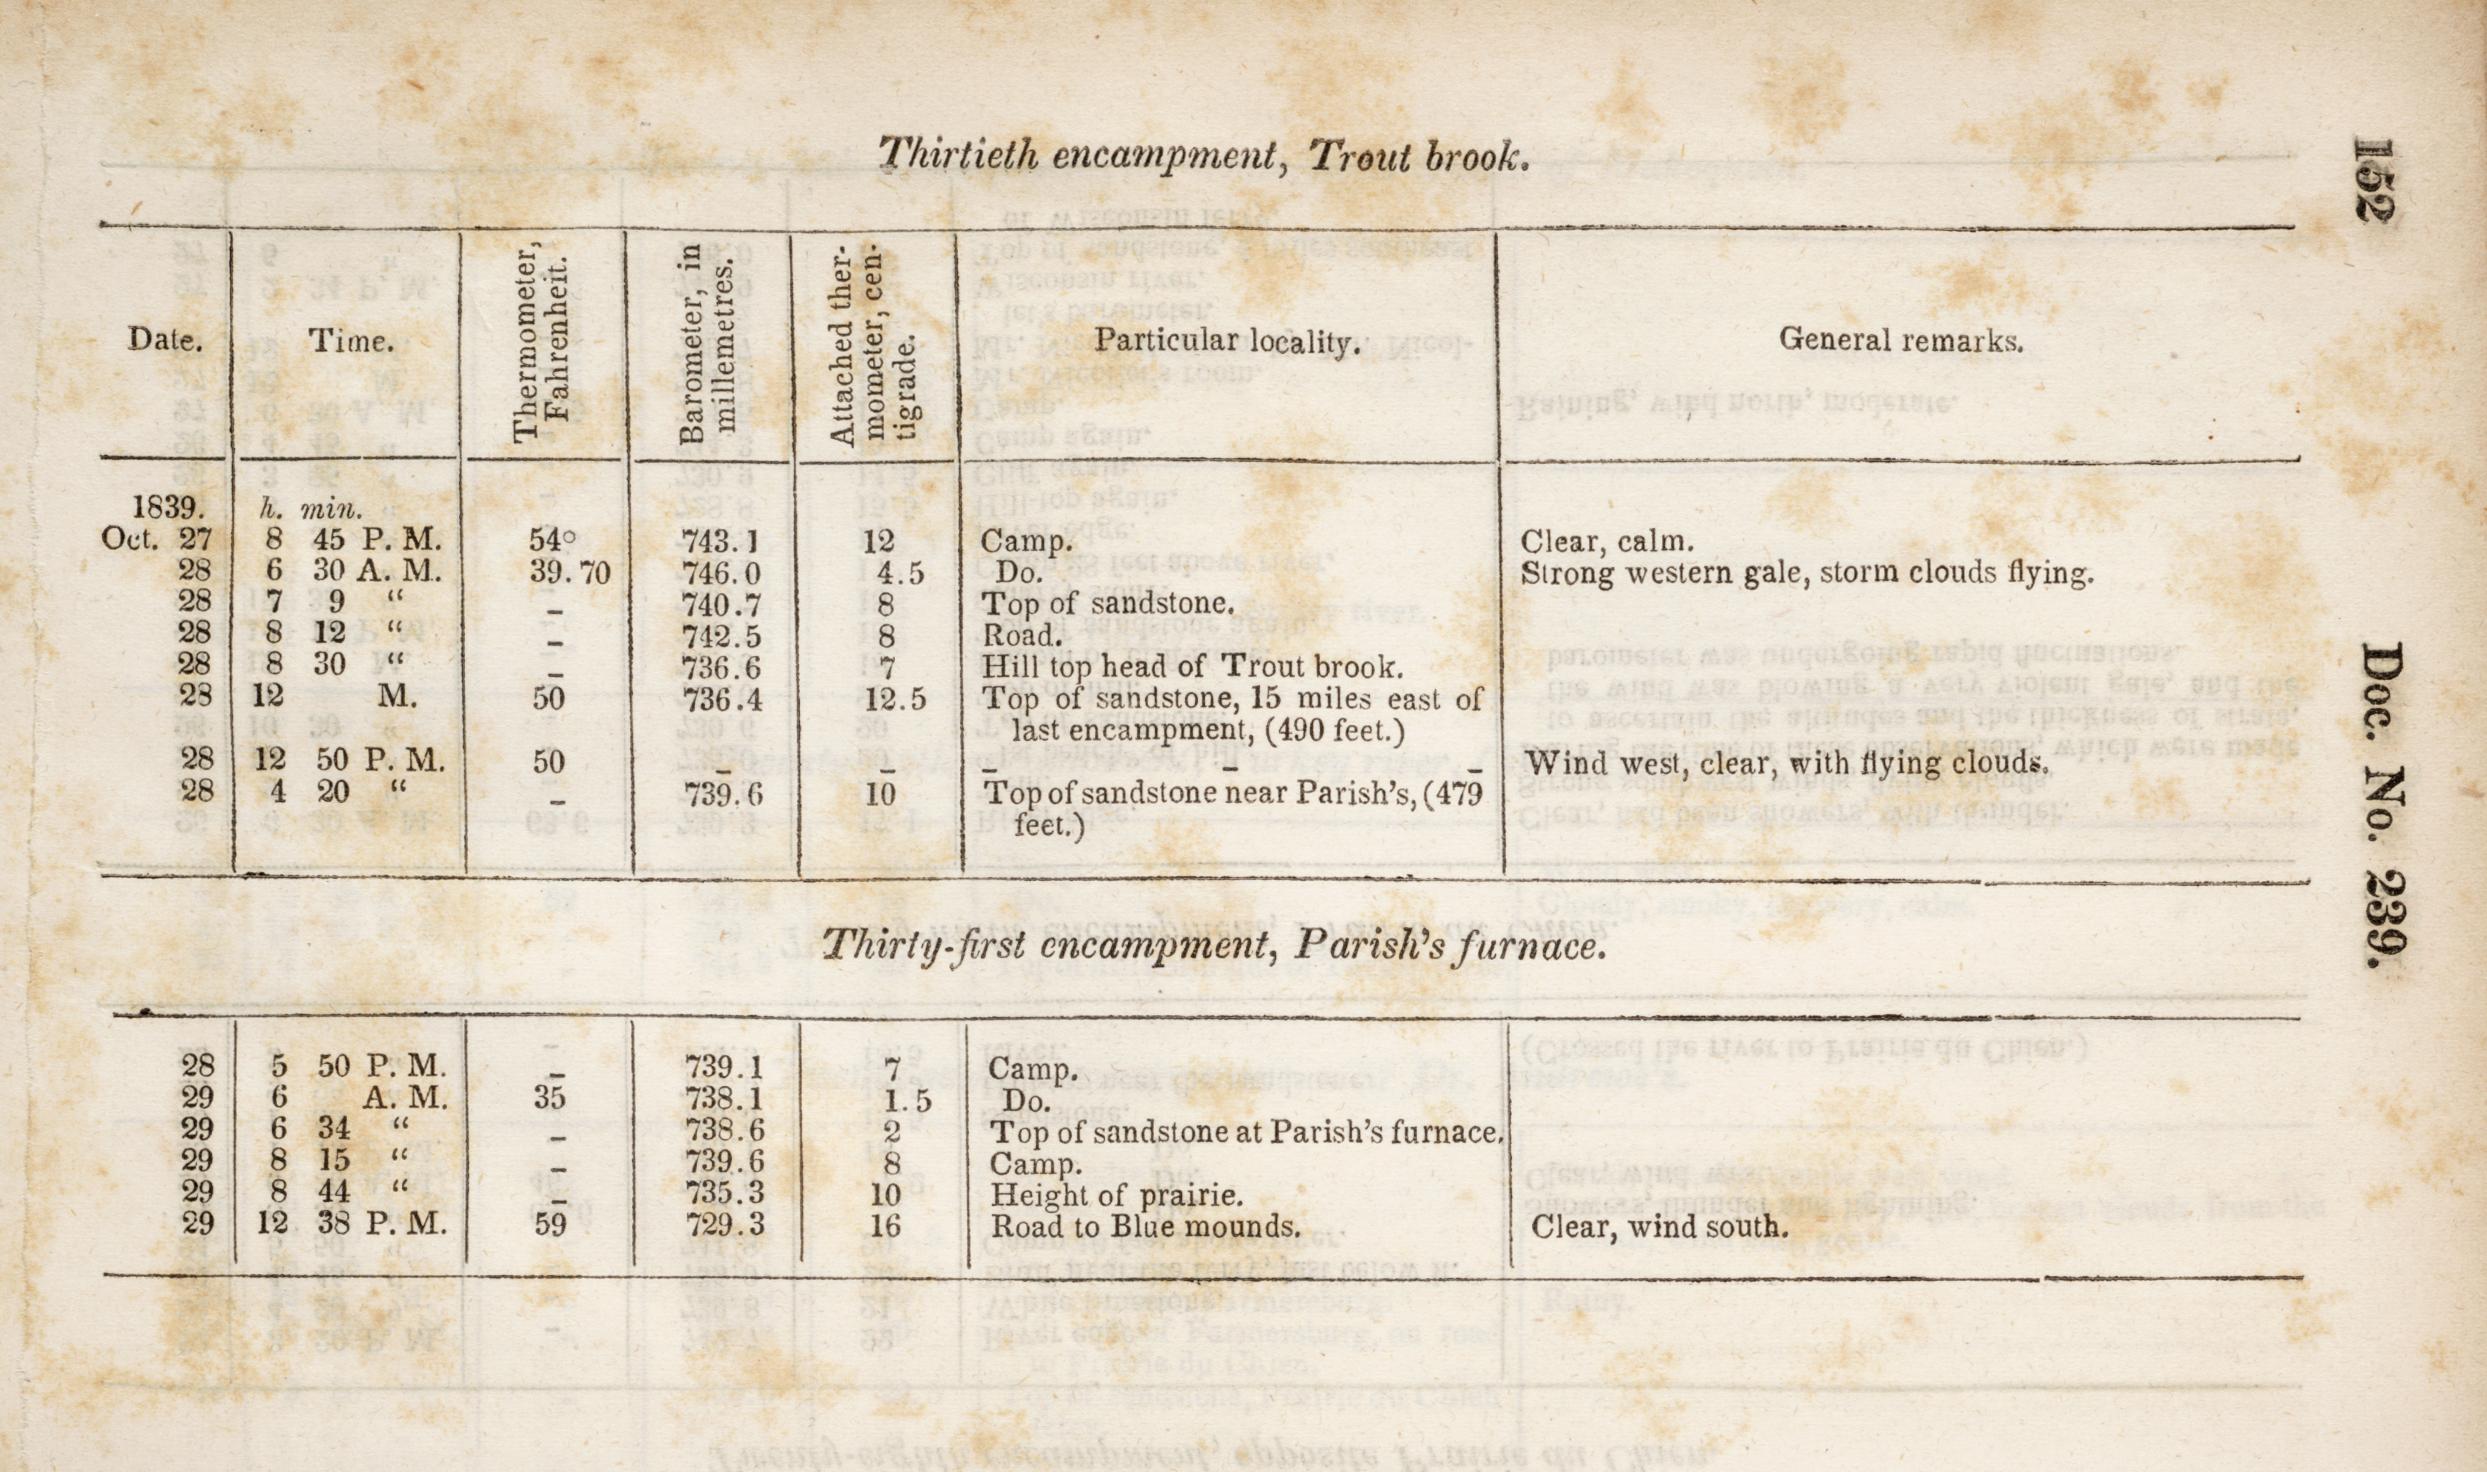 152
Doc. No. 239.
Thirtieth encampment, Trout brook.
Date. Time. Thermometer, Fahrenheit. Barometer, in millemetres. Attached ther-mometer, cen-tigrade. Particular locality. General remarks.
1839. h. min.
Oct. 27 8 45 P. M. 54° 743.1 12 Camp. Clear, calm.
28 6 30 A. M. 39.70 746.0 4.5 Do. Strong western gale, storm clouds flying.
28 7 9 “ – 740.7 8 Top of sandstone.
28 8 12 “ – 742.5 8 Road.
28 8 30 “ – 736.6 7 Hill top head of Trout brook.
28 12 M. 50 736.4 12.5 Top of sandstone, 15 miles east of
last encampment, (490 feet.)
28 12 50 P. M. 50 – – – – – Wind west, clear, with flying clouds.
28 4 20 “ – 739.6 10 Top of sandstone near Parish's, (479
feet.)
Thirty-first encampment, Parish's furnace.
28 5 50 P. M. – 739.1 7 Camp.
29 6 A. M. 35 738.1 1.5 Do.
29 6 34 “ – 738.6 2 Top of sandstone at Parish's furnace.
29 8 15 “ – 739.6 8 Camp.
29 8 44 “ – 735.3 10 Height of prairie.
29 12 38 P. M. 59 729.3 16 Road to Blue mounds. Clear, wind south.